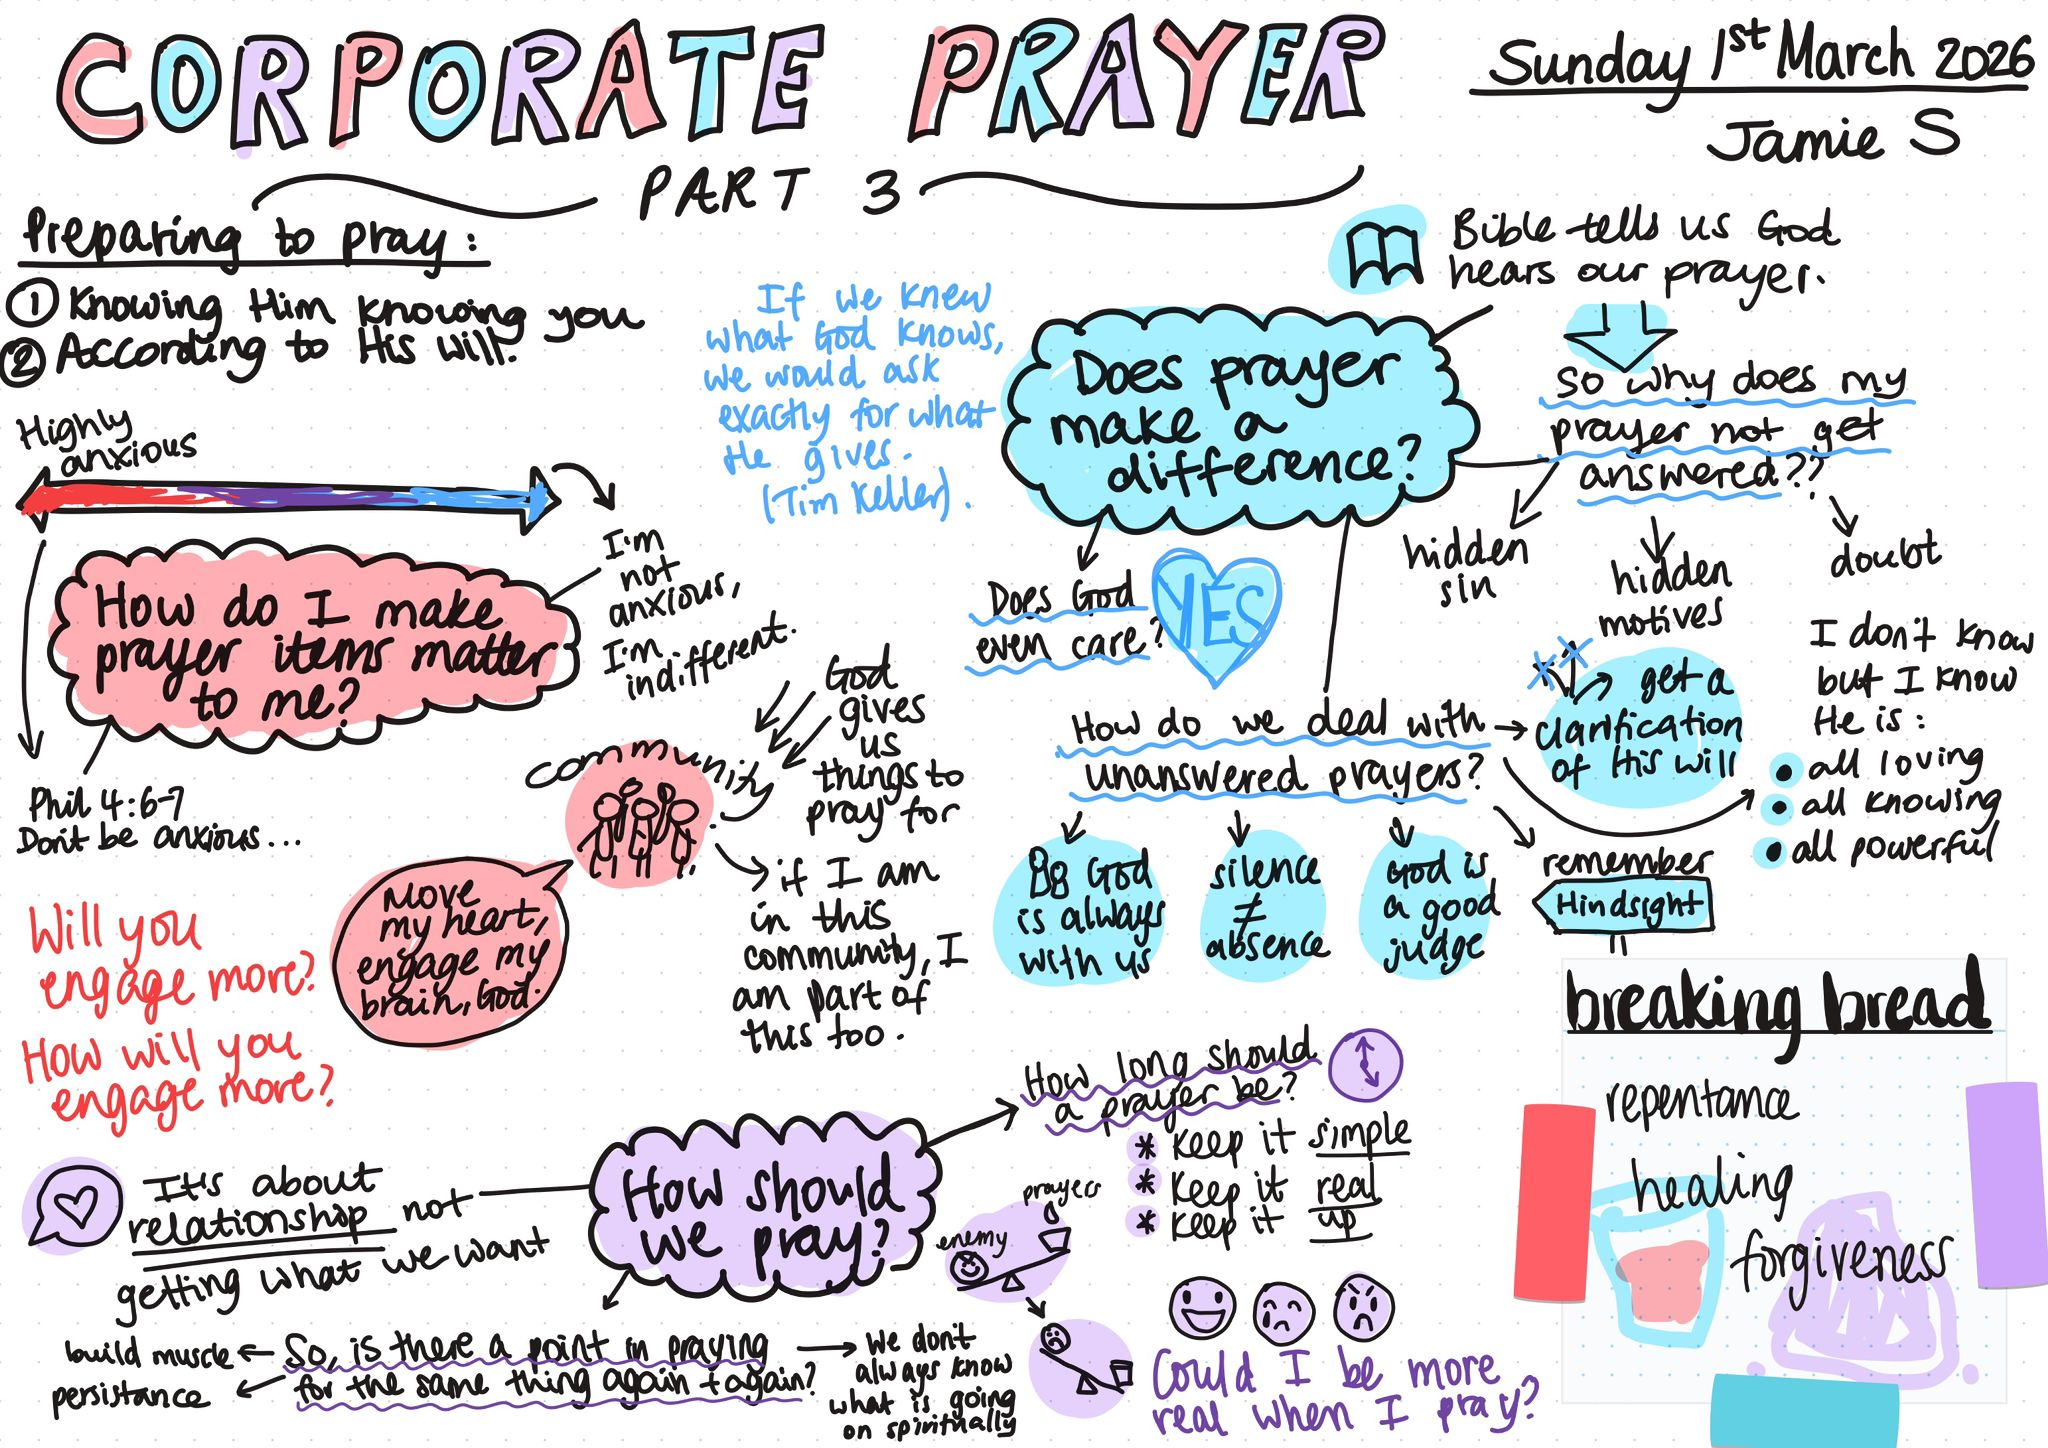 CORPORATE PRAYER
PART 3
Sunday 1st March 2026
Jamie S
Preparing to pray:
① Knowing Him knowing you
② According to His will.
Highly
anxious
How do I make
prayer items matter
to me?
I'm
not
anxious,
I'm
indifferent.
Phil 4:6-7
Don't be anxious...
Will you
engage more?
How will you
engage more?
community
Move
my heart,
engage my
brain, God.
God
gives
us
things to
pray for
if I am
in this
community, I
am part of
this too.
If we knew
what God knows,
we would ask
exactly for what
He gives.
(Tim Keller).
Does prayer
make a
difference?
Bible tells us God
hears our prayer.
So why does my
prayer not get
answered??
hidden
sin
hidden
motives
doubt
Does God
even care?
YES
How do we deal with
unanswered prayers?
get a
clarification
of His will
I don't know
but I know
He is:
• all loving
• all knowing
• all powerful
God
is always
with us
silence
≠
absence
God is
a good
judge
remember
Hindsight
breaking bread
repentance
healing
forgiveness
How should
we pray?
How long should
a prayer be?
* Keep it simple
* Keep it real
* Keep it up
It's about
relationship not
getting what we want
So, is there a point in praying
for the same thing again + again?
build muscle
persistance
We don't
always know
what is going
on spiritually
prayers
enemy
Could I be more
real when I pray?